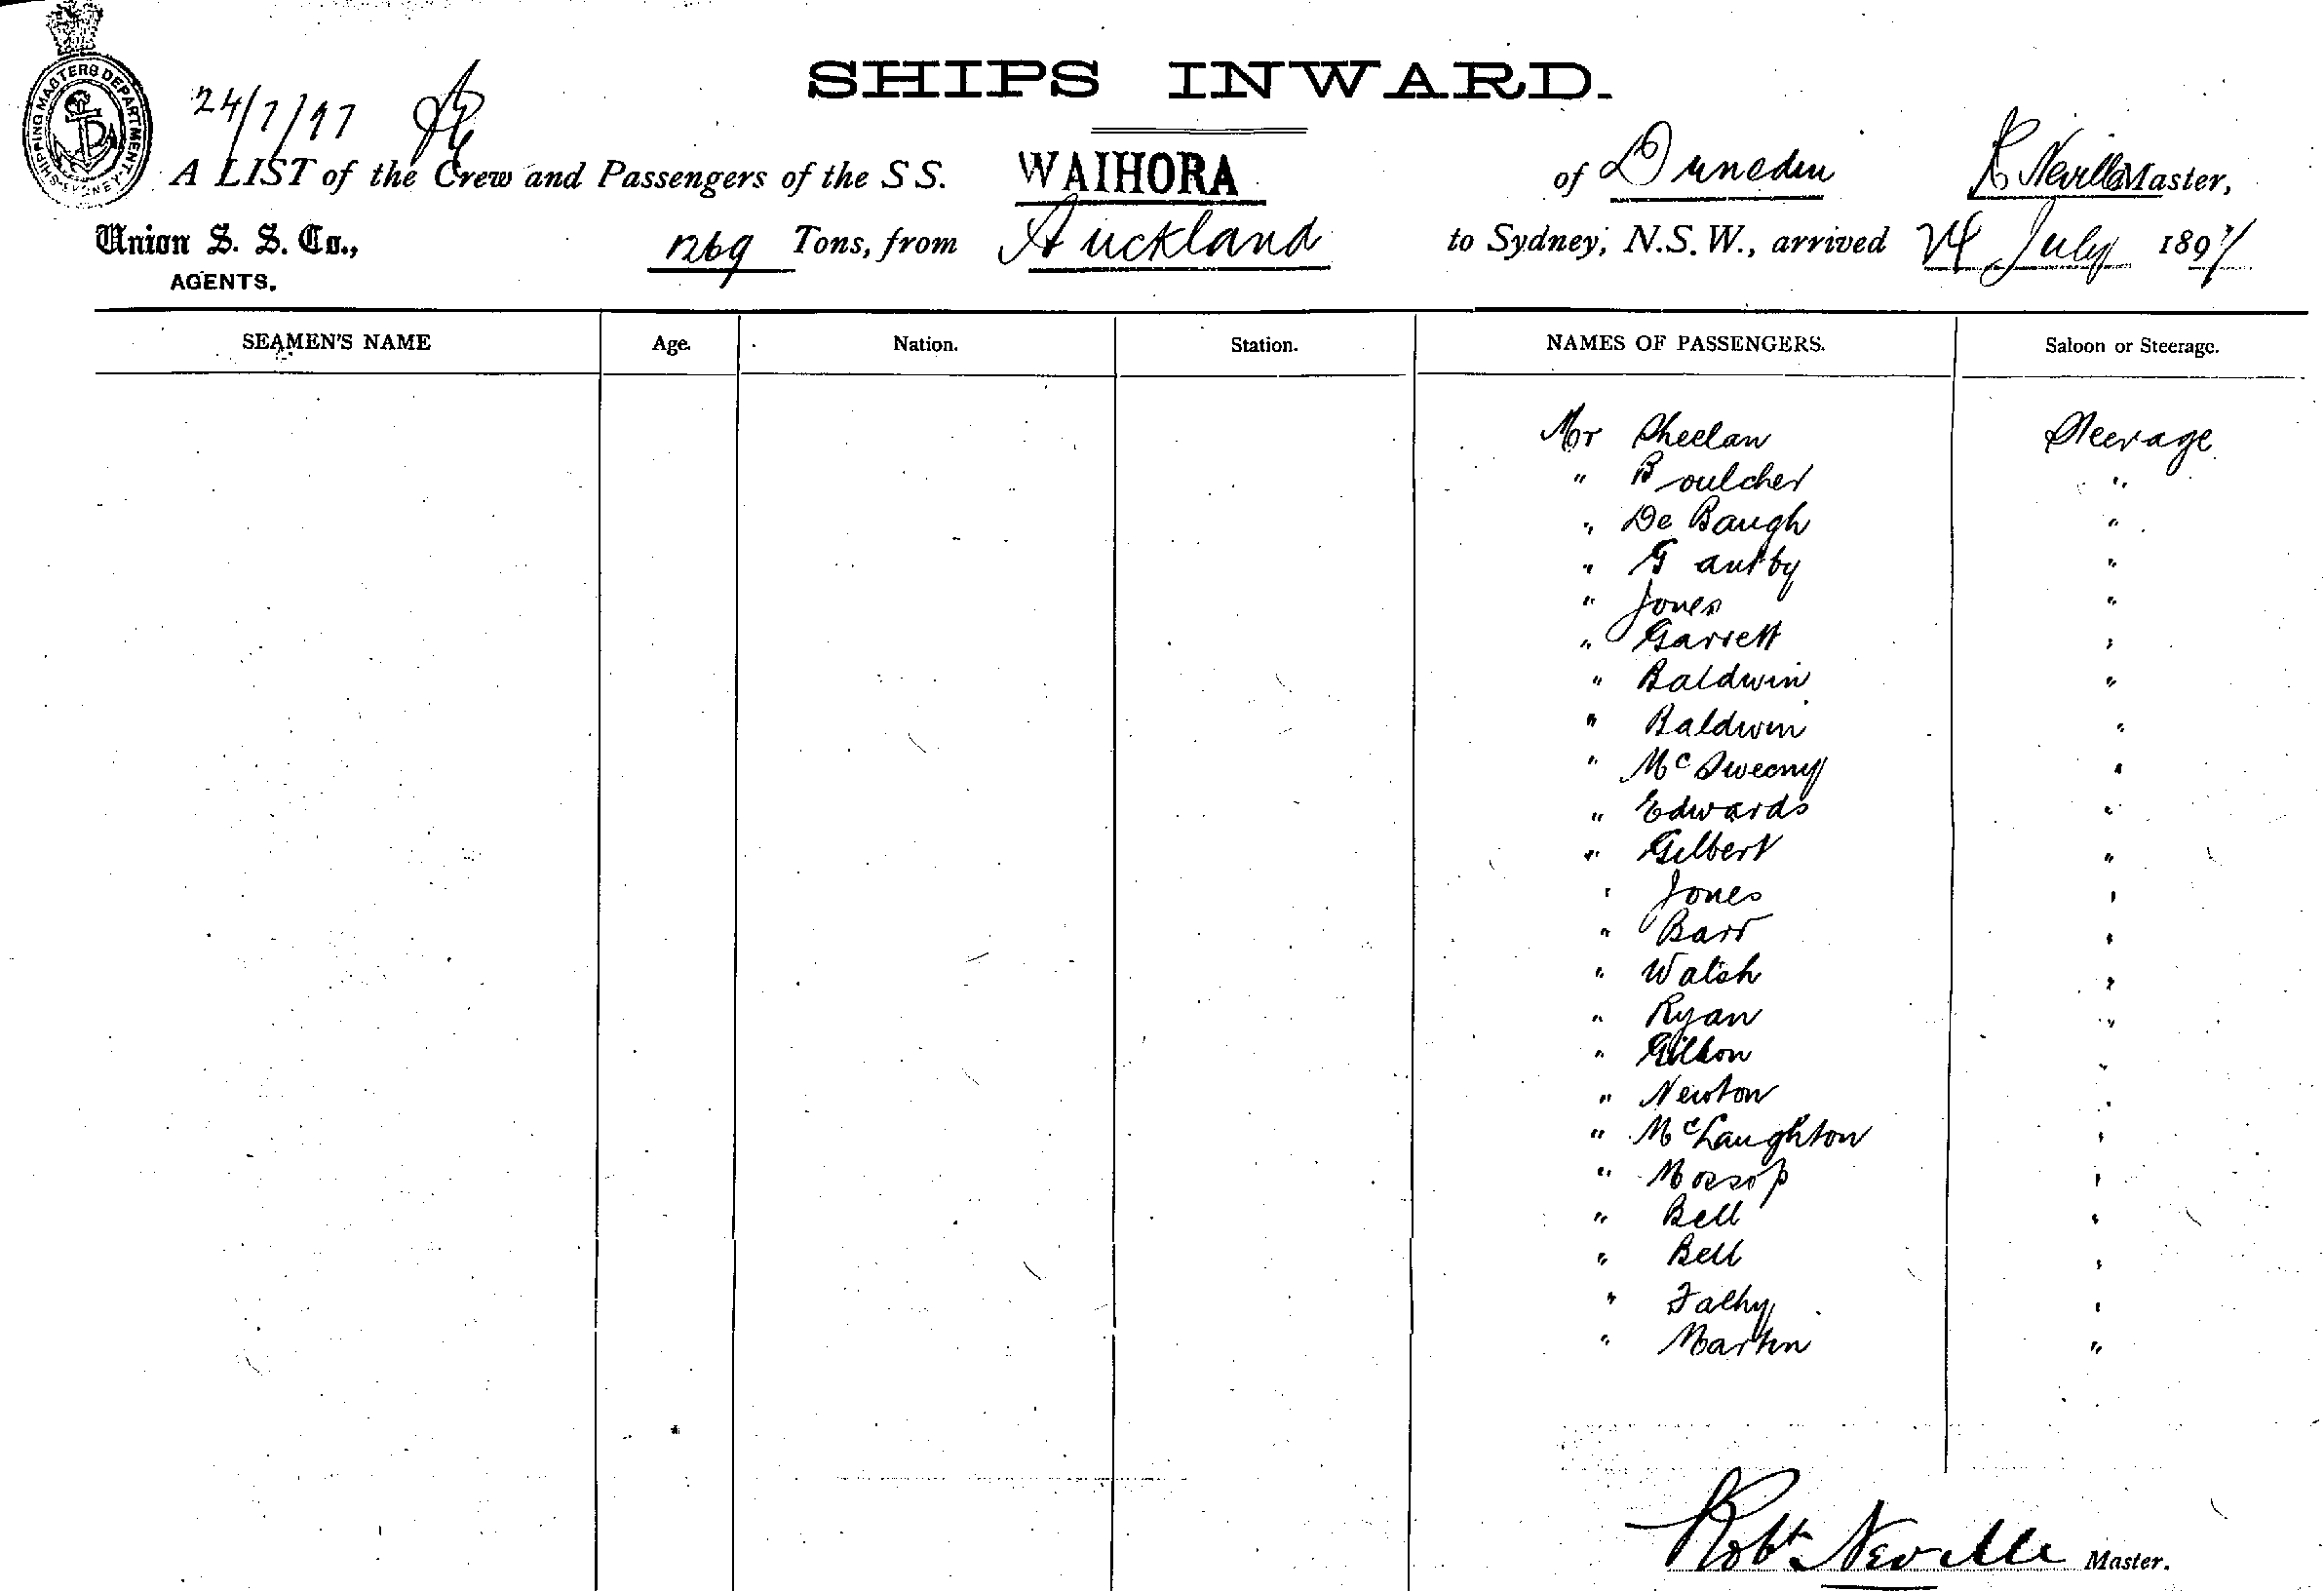 SHIPPING MASTERS DEPARTMENT SYDNEY
24/7/97
SHIPS INWARD.
A LIST of the Crew and Passengers of the S S. WAIHORA of Dunedin R Neville Master,
Union S. S. Co., 1269 Tons, from Auckland to Sydney, N.S.W., arrived 24 July 1897
AGENTS.
SEAMEN'S NAME Age. Nation. Station. NAMES OF PASSENGERS. Saloon or Steerage.
Mr Sheelan Steerage
" Boulcher "
" De Baugh "
" "
" Jones "
" Garrett "
" Baldwin "
" Baldwin "
" McSweeny "
" Edwards "
" Gilbert "
" Jones "
" Barr "
" Walsh "
" Ryan "
" "
" Newton "
" McLaughton "
" Mossop "
" Bell "
" Bell "
" Falhy "
" Martin "
Robt Neville Master.